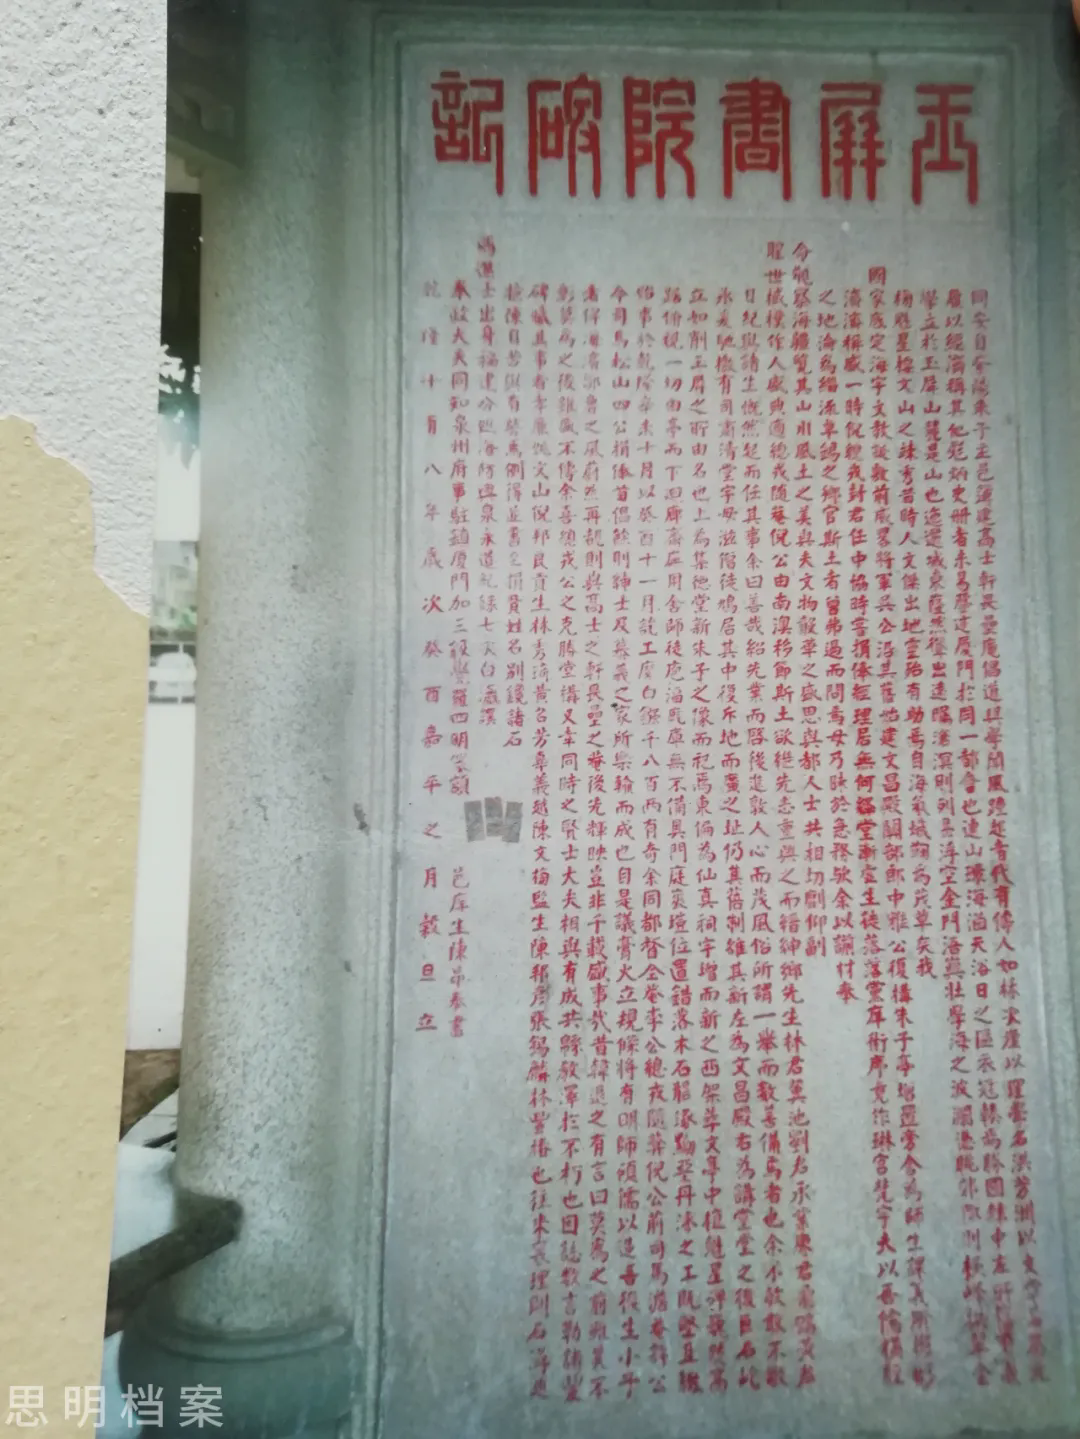 玉屏書院碑記
同安自紫陽朱子主邑簿建高士軒畏壘庵倡道興學聞風踵起者代有偉人如林次崖以理學名洪芳洲以文章
以經濟稱其他彪炳史冊者未易罄述廈門於同一都會也連山環海滔天浴日之區衣冠
學立於玉屏山麓是山也迤邐城東蔚然聳出遠矚滄溟則列島浮空金門海
梅應星樓文山之竦秀昔時人文傑出地靈殆有助焉自海氛城鞠為茂草矣我
國家底定海宇文教誕敷前威畧將軍吳公沿其舊址建文昌殿關部郎中雅公復構朱子亭增置旁舍為師生課
濟濟稱盛一時倪總戎封君任中協時嘗捐俸經理居無何
之地淪為緇流卓錫之鄉官斯土者曾弗過而問焉毋乃昧於急務歟余以謭材奉
命觀察海疆覽其山川風土之美與夫文物聲華之盛思與都人士共相切劘仰副
聖世棫樸作人盛典適總戎隨菴倪公由南澳移節斯土欲繼先志重興之而縉紳鄉先生林君翼池劉君承業廖君飛鵬黃君
日紀與諸生慨然起而任其事余曰善哉紹先業而啓後進敦人心而茂風俗所謂一舉而數善備焉者也余不敢
永爰馳檄有司肅清堂宇毋滋僧徒鳩居其中復斥地而廣之址仍其舊制維其新左為文昌殿右為講堂堂之後巨石屹
立如削玉屏之所由名也上為集德堂新朱子之像而祀焉東偏為仙真祠宇增而新之西架萃文亭中植魁星
踞俯視一切由亭而下迴廊齋庄用舍師徒庖湢既庫無不備具門庭爽塏位置錯落木石髹漆黝堊丹泳之工既堅且緻
始事於乾隆辛未十月以癸酉十一月訖工麋白鏹千八百兩有奇余同都督全菴李公總戎隨菴倪公前司馬澹菴許公
今司馬松山四公捐俸首倡餘則紳士及慕義之家所樂輸而成也自是議膏火立規條將有明師碩儒以造吾後生小子
者俾海濱鄒魯之風蔚然再覩則與高士之軒畏壘之菴後先輝映豈非千載盛事哉昔韓退之有言曰莫為之前雖美不
彰莫為之後雖盛不傳余喜總戎公之克勝堂構又幸同時之賢士大夫相與有成共縣教澤於不朽也因誌數言勒諸豐
碑贓其事者孝廉倪邦良貢生林秀黃名芳募義越陳文梅監生陳邦彥張錫麟林豐椿也往來
陳自若與有勞焉例得並書至捐貲姓名別鐫諸石
賜進士出身福建分巡海防興泉永道紀錄七次白瀛漢
奉政大夫同知泉州府事駐鎮廈門加三級覺羅四明篆額
邑庠生陳昂奉書
乾隆十有八年歲次癸酉嘉平之月穀旦立
思明档案